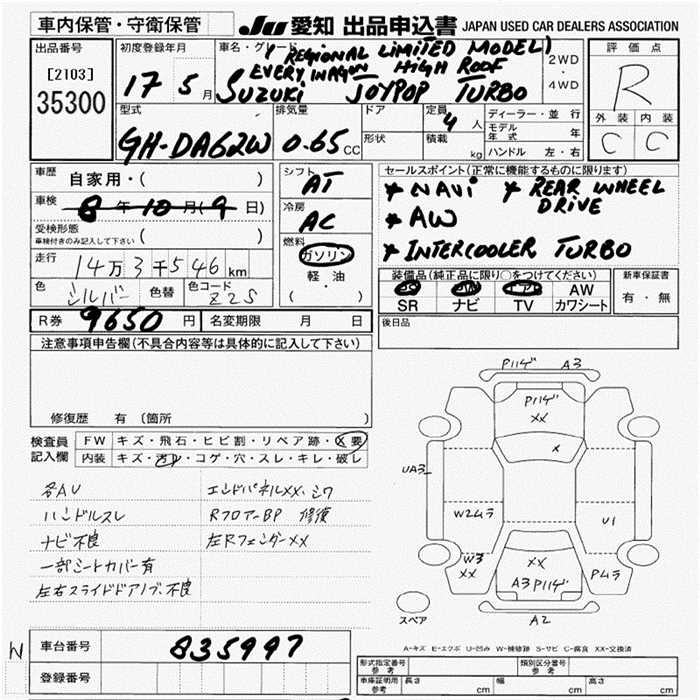 車内保管・守衛保管
JU 愛知 出品申込書 JAPAN USED CAR DEALERS ASSOCIATION
出品番号
[2103]
35300
初度登録年月
17 5月
車名・グレード
(REGIONAL LIMITED MODEL)
EVERY WAGON HIGH ROOF
SUZUKI JOYPOP TURBO
2WD
・
4WD
評価点
R
外装 内装
C C
型式
GH-DA62W
排気量
0.65 CC
ドア
形状
定員
4人
積載
kg
ディーラー・並行
モデル年式 年
ハンドル 左・右
車歴 自家用・( )
車検 8年10月(9日)
受検形態
車検付きのみ記入して下さい ( )
走行 14万3千546km
色 シルバー 色替 色コード Z2S
R券 9650円 名変期限 月 日
シフト
AT
冷房
AC
燃料
ガソリン
軽・油
( ・ )
セールスポイント(正常に機能するものに限ります)
* NAVi * REAR WHEEL DRIVE
* AW
* INTERCOOLER TURBO
装備品(純正品に限り○をつけてください)
AW
SR ナビ TV カワシート
新車保証書
有・無
後日品
注意事項申告欄(不具合内容等は具体的に記入して下さい)
修復歴 有 〔箇所 〕
検査員
記入欄
FW キズ・飛石・ヒビ割・リペア跡・X要
内装 キズ・汚レ・コゲ・穴・スレ・キレ・破レ
各AU
ハンドルスレ
ナビ不良
一部シートカバー有
左右スライドドアノブ不良
エンドパネルXX、シワ
RフロアーBP 修復
左RフェンダーXX
P11ゲ A3
P11ゲ
XX
X
UA3
W2ムラ
U1
W3
XX
XX
A3 P11ゲ
Pムラ
A2
スペア
A-キズ E-エクボ U-凹み W-補修跡 S-サビ C-腐食 XX-交換済
N
車台番号 835997
登録番号
形式指定番号
参考
類別区分番号
参考
車庫証明用
参考
長さ cm 幅 cm 高さ cm